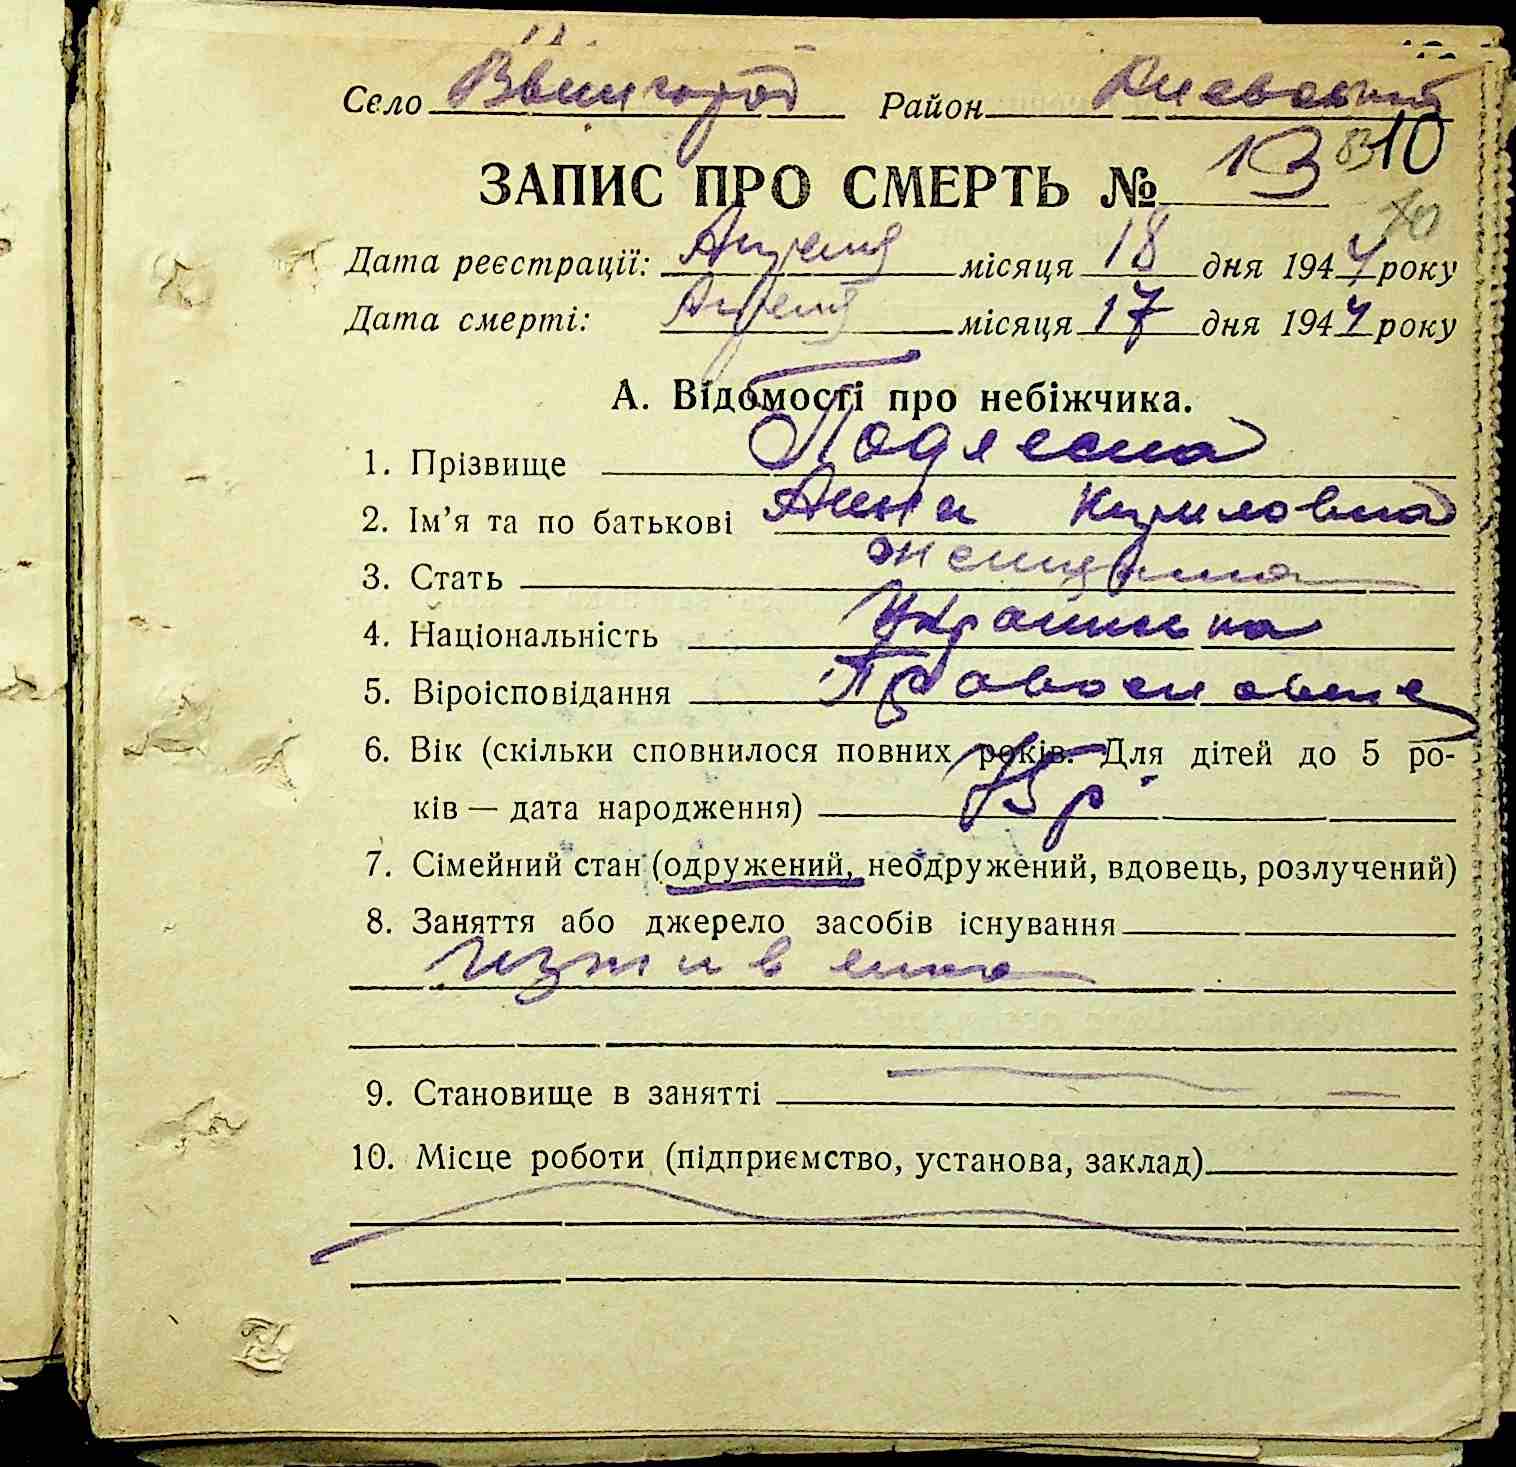 Село Вышгород Район Киевский
83 10
ЗАПИС ПРО СМЕРТЬ № 13
Дата реєстрації: Апреля місяця 18 дня 1944 року
Дата смерті: Апреля місяця 17 дня 1944 року
А. Відомості про небіжчика.
1. Прізвище Подлесна
2. Ім'я та по батькові Анна Кириловна
3. Стать женщина
4. Національність Украинка
5. Віроісповідання Православне
6. Вік (скільки сповнилося повних років. Для дітей до 5 ро-
ків — дата народження) р
7. Сімейний стан (одружений, неодружений, вдовець, розлучений)
8. Заняття або джерело засобів існування
иждивенка
9. Становище в занятті
10. Місце роботи (підприємство, установа, заклад)